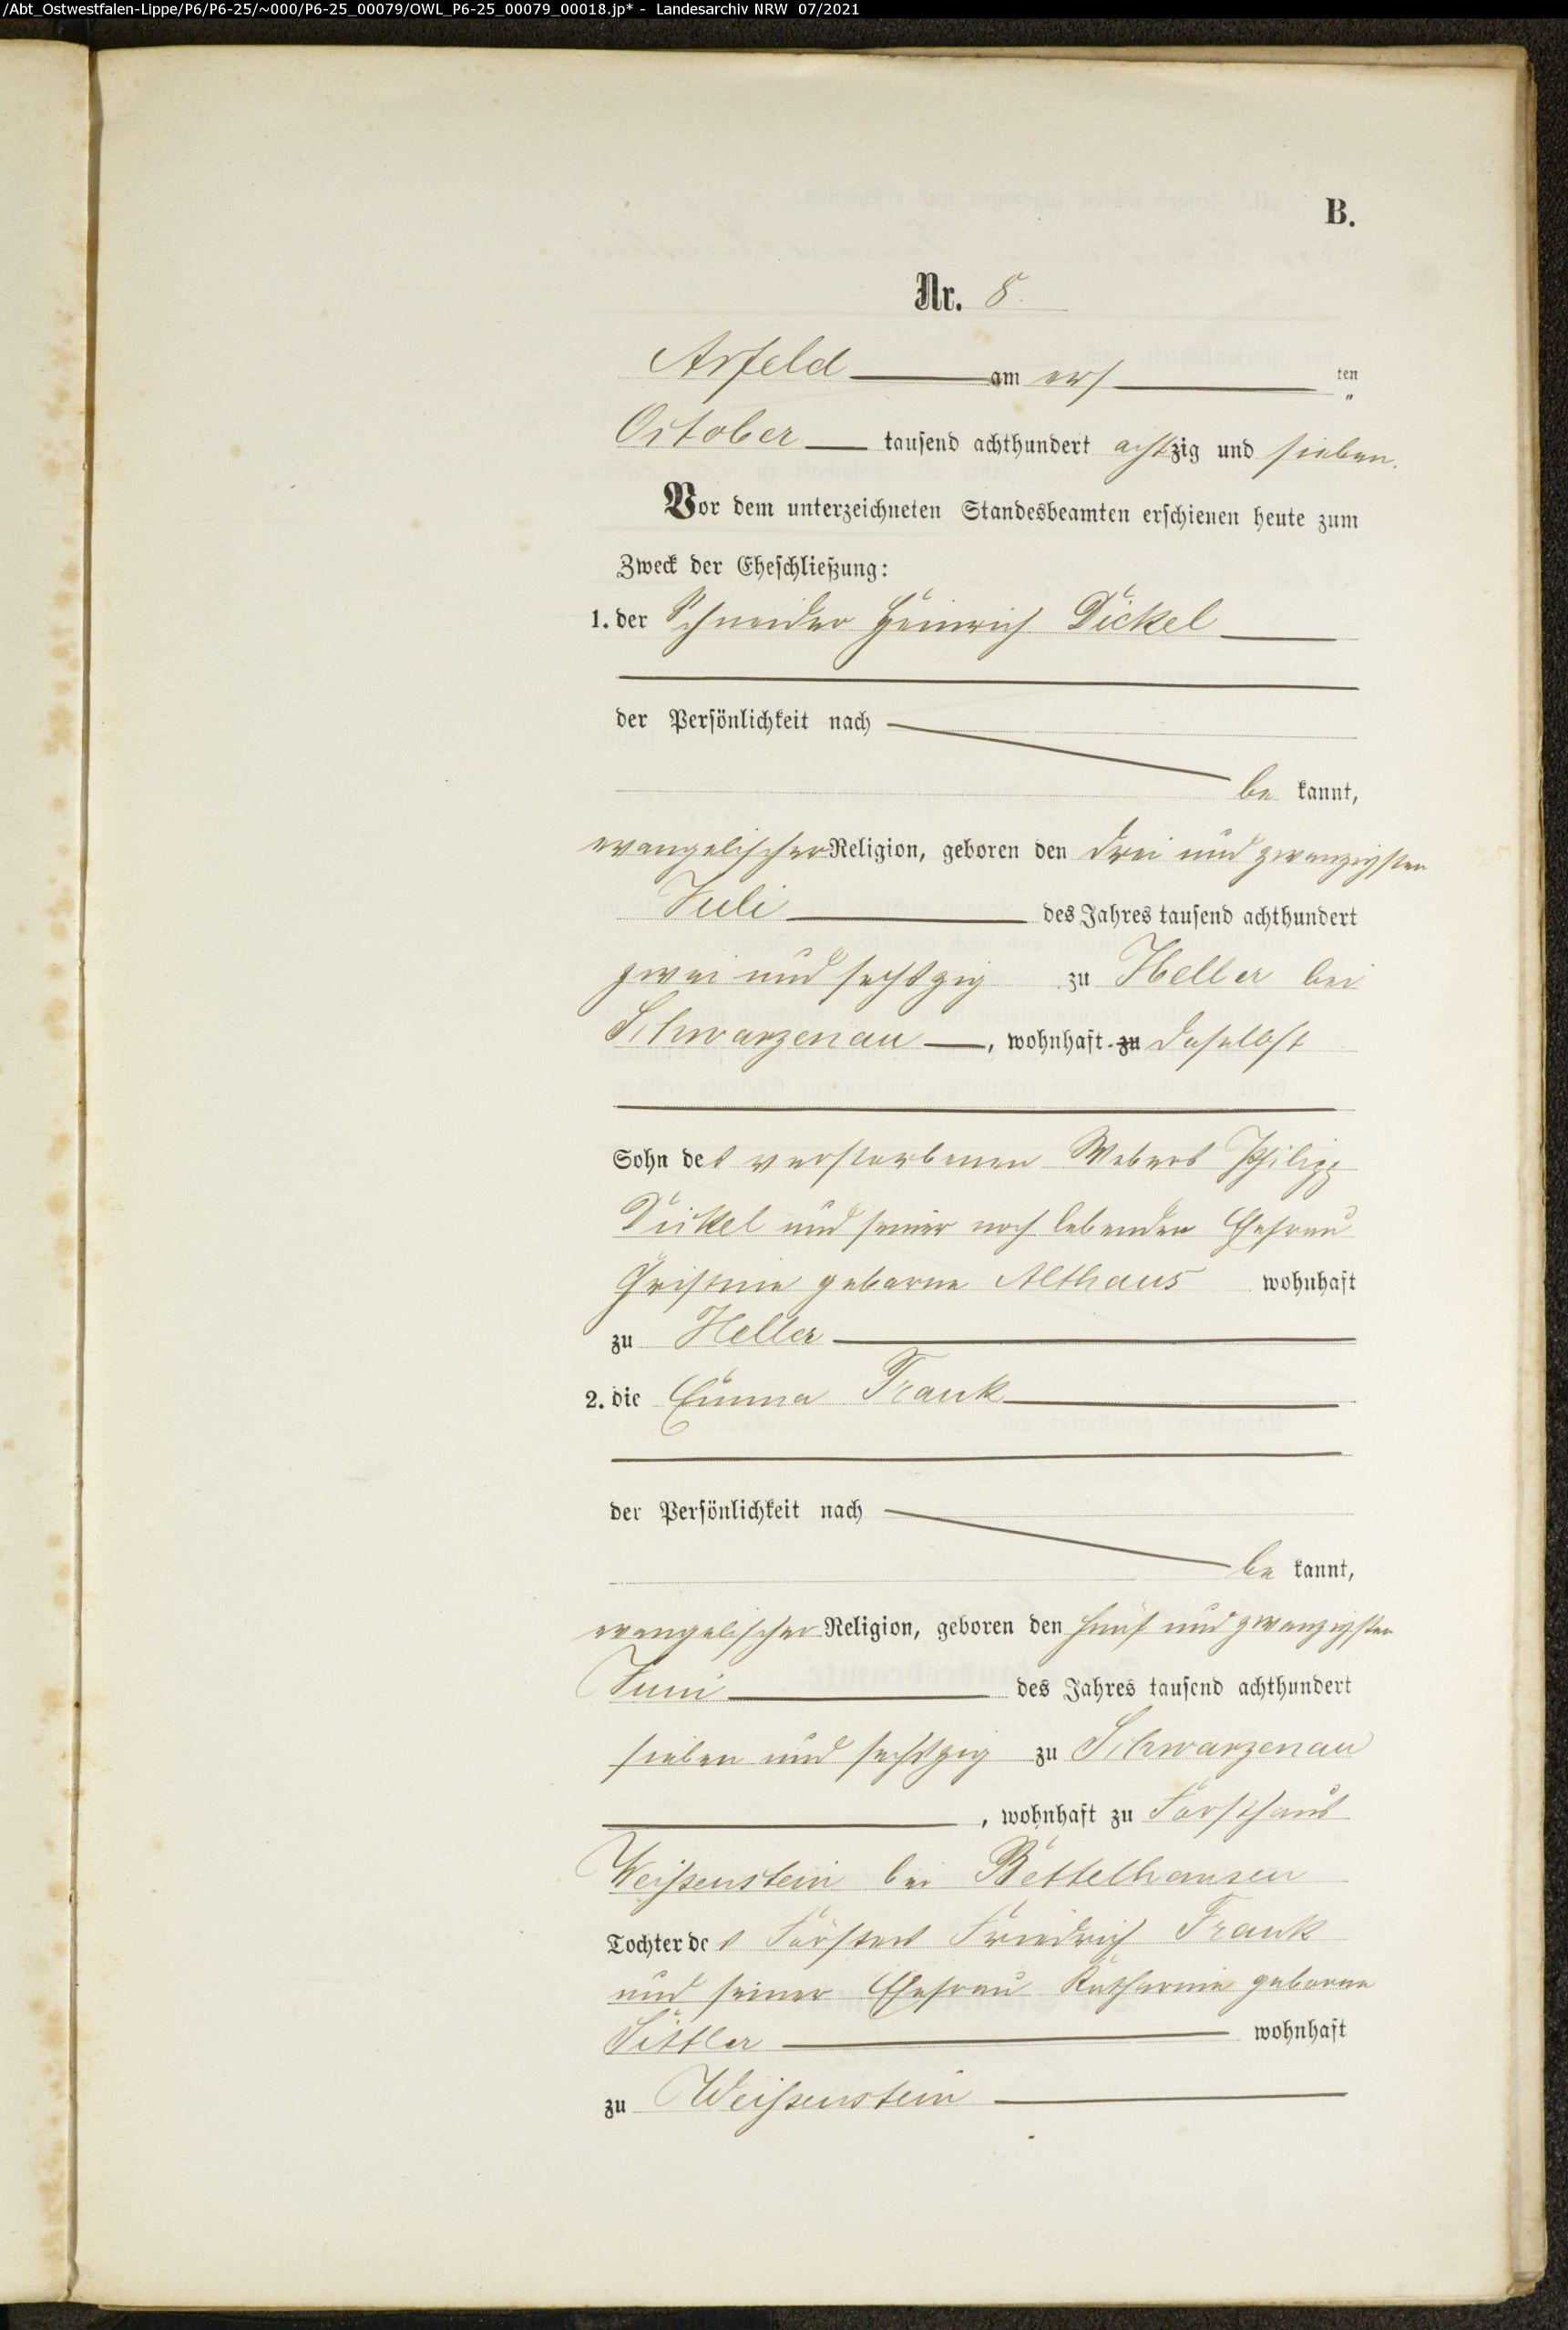 /Abt_Ostwestfalen-Lippe/P6/P6-25/~000/P6-25_00079/OWL_P6-25_00079_00018.jp* - Landesarchiv NRW 07/2021
B.
Nr. 8.
Arfeld am ers ten
October tausend achthundert achtzig und sieben.
Vor dem unterzeichneten Standesbeamten erschienen heute zum
Zweck der Eheschließung:
1. der Schneider Heinrich Dickel
der Persönlichkeit nach
be kannt,
evangelischer Religion, geboren den drei und zwanzigsten
Juli des Jahres tausend achthundert
zwei und sechszig zu Heller bei
Schwarzenau, wohnhaft zu daselbst
Sohn des verstorbenen Webers Philipp
Dickel und seiner noch lebenden Ehefrau
Christine geborne Althaus wohnhaft
zu Heller
2. die Emma Frank
der Persönlichkeit nach
be kannt,
evangelischer Religion, geboren den fünf und zwanzigsten
Juni des Jahres tausend achthundert
sieben und sechszig zu Schwarzenau
, wohnhaft zu Forsthaus
Weißenstein bei Bettelhausen
Tochter des Försters Friedrich Frank
und seiner Ehefrau Katharine geborne
wohnhaft
zu Weißenstein